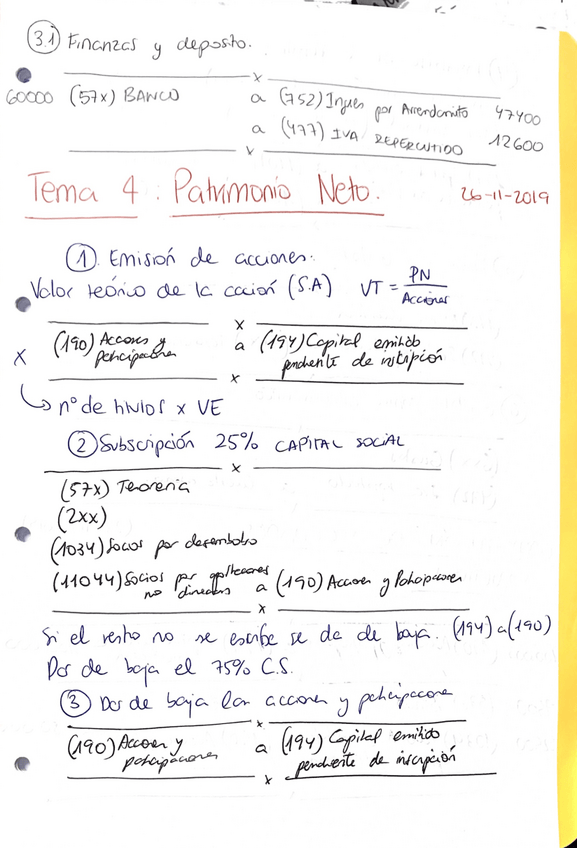 3.1 Finanzas y deposito.
x
60000 (57x) BANCO a (752) Ingres por Arrendamito 47400
a (477) IVA REPERCUTIDO 12600
x
Tema 4 : Patrimonio Neto. 26-11-2019
1 Emisión de acciones.
Valor teórico de la acción (S.A) VT = PN / Acciones
x
(190) Acciones y participaciones a (194) Capital emitido pendiente de inscripción
x
x
nº de titulos x VE
2 Subscripción 25% CAPITAL SOCIAL
x
(57x) Tesoreria
(2xx)
(1034) Socios por desembolso
(11044) Socios por aportaciones no dineras a (190) Accion y Participaciones
x
Si el resto no se escribe se da de baja. (194) a (190)
Dar de baja el 75% C.S.
3 Dar de baja las acciones y participaciones
x
(190) Acciones y participaciones a (194) Capital emitido pendiente de inscripción
x